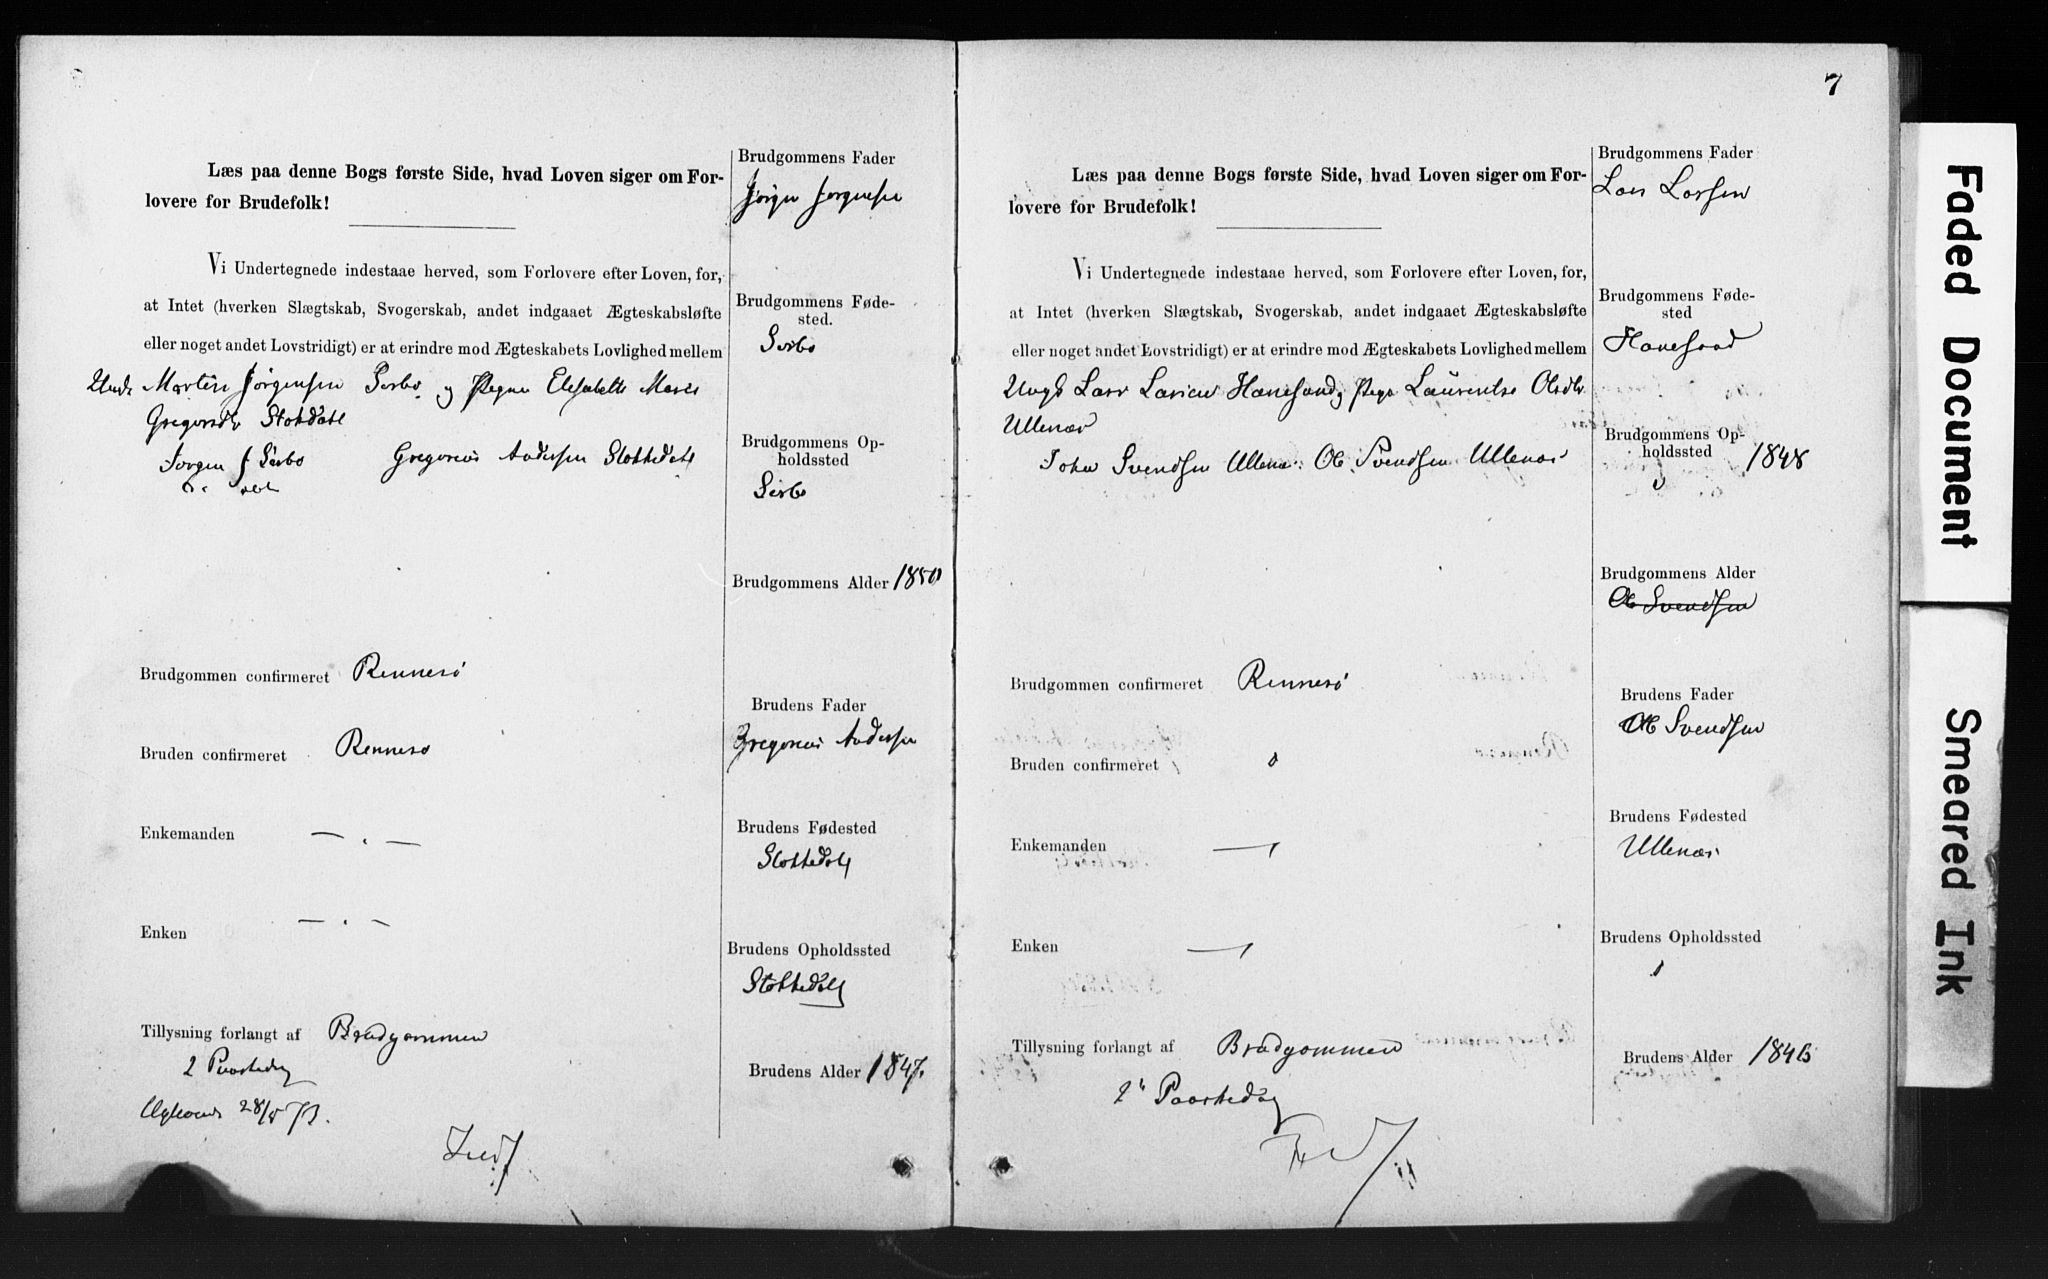 Læs paa denne Bogs første Side, hvad Loven siger om For-
lovere for Brudefolk!
Vi Undertegnede indestaae herved, som Forlovere efter Loven, for,
at Intet (hverken Slægtskab, Svogerskab, andet indgaaet Ægteskabsløfte
eller noget andet Lovstridigt) er at erindre mod Ægteskabets Lovlighed mellem
Martin Jørgensen Sørbo og Pigen Elisabeth Marie
Gregersdtr Stokdal
Jørgen J Sørbo Gregorius Andersen Slottedal
Brudgommen confirmeret Rennesö
Bruden confirmeret Rennesø
Enkemanden — . —
Enken — . —
Tillysning forlangt af Brudgommen
2 Paaskedag
28/5 73.
Brudgommens Fader
Jörgen Jorgensen
Brudgommens Føde-
sted.
Sørbo
Brudgommens Op-
holdssted
Sørbo
Brudgommens Alder 1850
Brudens Fader
Gregorius Andersen
Brudens Fødested
Slottedal
Brudens Opholdssted
Slottedal
Brudens Alder 1847.
7
Læs paa denne Bogs første Side, hvad Loven siger om For-
lovere for Brudefolk!
Vi Undertegnede indestaae herved, som Forlovere efter Loven, for,
at Intet (hverken Slægtskab, Svogerskab, andet indgaaet Ægteskabsløfte
eller noget andet Lovstridigt) er at erindre mod Ægteskabets Lovlighed mellem
Ungk Lars Larsen Hanesand og Pige Laurentse Olsdtr
Ullenæs
John Svendsen Ullenæs Ole Svendsen Ullenæs
Brudgommen confirmeret Rennesö
Bruden confirmeret
Enkemanden —
Enken —
Tillysning forlangt af Brudgommen
2 Paaskedag
Brudgommens Fader
Lars Larsen
Brudgommens Føde-
sted
Hanesand
Brudgommens Op-
holdssted 1848
Brudgommens Alder
Ole Svendsen
Brudens Fader
Ole Svendsen
Brudens Fødested
Ullenæs
Brudens Opholdssted
Brudens Alder 1846
Faded Document
Smeared Ink